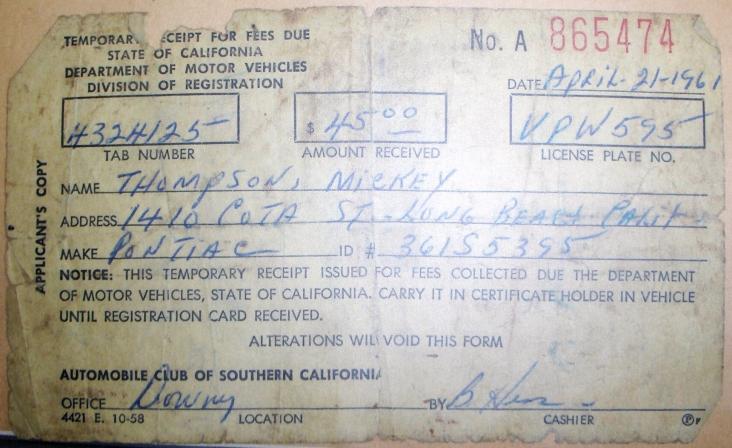 TEMPORARY RECEIPT FOR FEES DUE
STATE OF CALIFORNIA
DEPARTMENT OF MOTOR VEHICLES
DIVISION OF REGISTRATION
No. A 865474
DATE April-21-1961
4324125 $ 45 00 VPW595
TAB NUMBER AMOUNT RECEIVED LICENSE PLATE NO.
NAME THOMPSON, MICKEY
ADDRESS 1410 COTA ST-LONG BEACH CALIF.
MAKE PONTIAC ID # 361S5395
NOTICE: THIS TEMPORARY RECEIPT ISSUED FOR FEES COLLECTED DUE THE DEPARTMENT
OF MOTOR VEHICLES, STATE OF CALIFORNIA. CARRY IT IN CERTIFICATE HOLDER IN VEHICLE
UNTIL REGISTRATION CARD RECEIVED.
ALTERATIONS WILL VOID THIS FORM
AUTOMOBILE CLUB OF SOUTHERN CALIFORNIA
OFFICE Downy BY B.
4421 E. 10-58 LOCATION CASHIER
APPLICANT'S COPY